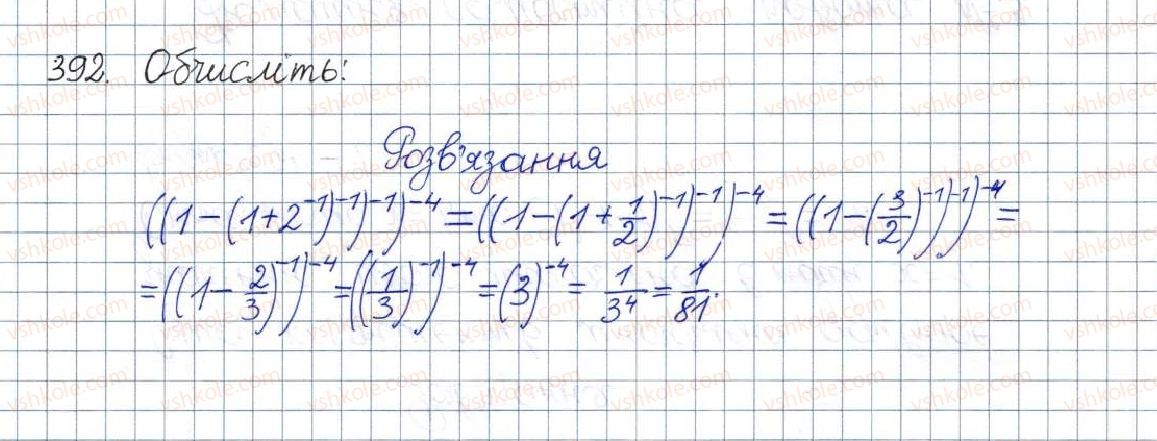 392. Обчисліть:
Розв'язання
((1-(1+2^-1)^-1)^-1)^-4 = ((1-(1+1/2)^-1)^-1)^-4 = ((1-(3/2)^-1)^-1)^-4 =
= ((1-2/3)^-1)^-4 = ((1/3)^-1)^-4 = (3)^-4 = 1/3^4 = 1/81.